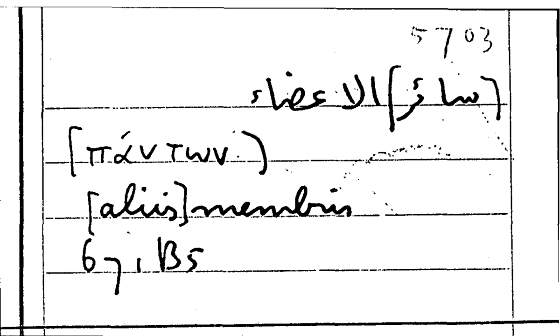 5703
[سائر] الاعضاء
[πάντων]
[aliis] membris
67, B5